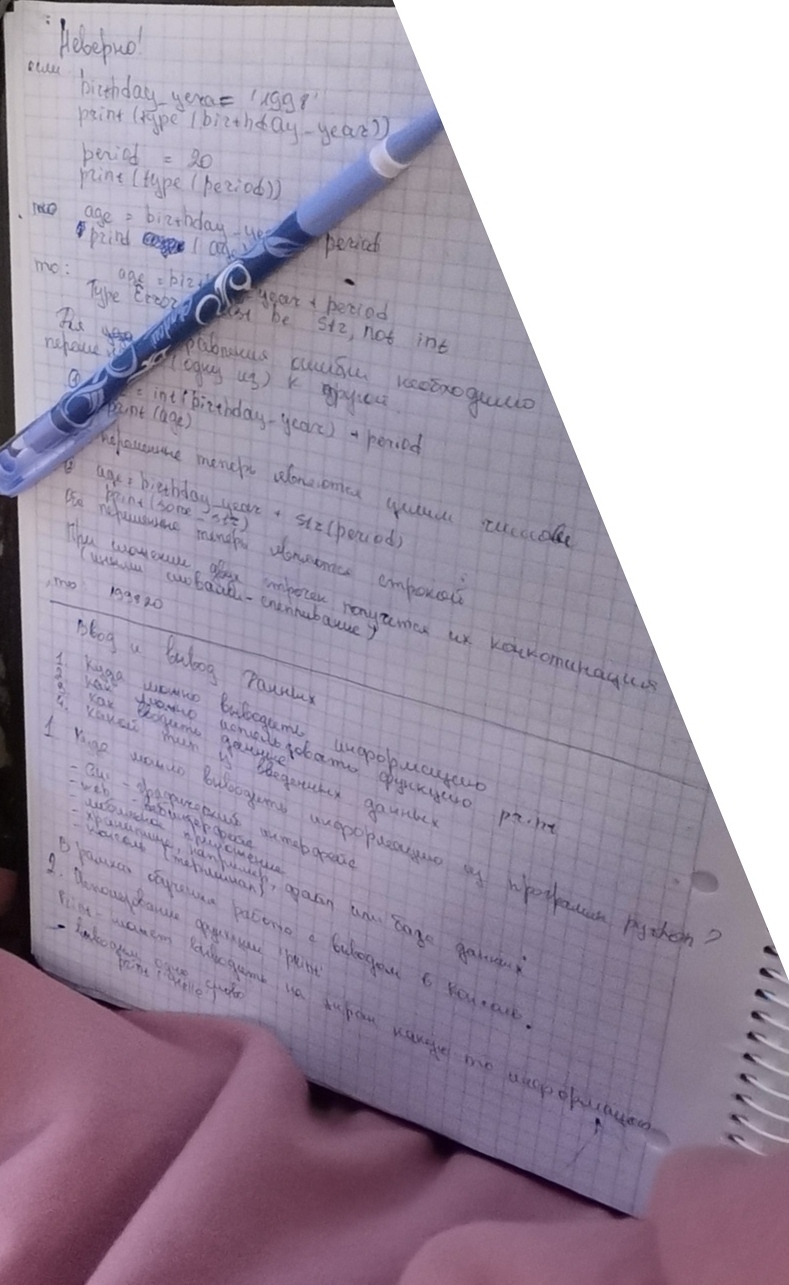 Неверно!
если
birthday_yera = '1998'
print (type (birthday_year))
period = 20
print (type (period))
то age = birthday_ye period
print ( ag
то: age = birt year + period
Type Error st be str, not int
Для равления ошибки необходимо
переме (одну из) к другой.
= int (birthday_year) + period
print (age)
переменные теперь являются целым числом
age = birthday_year + str (period)
print (some_str)
Обе переменные теперь являются строкой
При сложении двух строчек получится их конкотинация
(иными словами - слепливание)
,то 199820
Ввод и вывод данных
1. Куда можно выводить информацию
2. Как можно использовать функцию print
3. Как вводить данные
4. Какой тип у введенных данных
1. Куда можно выводить информацию из программ python?
- Gui - графический интерфейс
- web - вебинтерфейс
- мобильное приложение
- хранилище, например, файл или база данных
- консоль (терминал)
В рамках обучения работа с выводом в консоль.
2. Использование функции print
Print - может выводить на экран какую то информацию
- Выводим одно слово
print